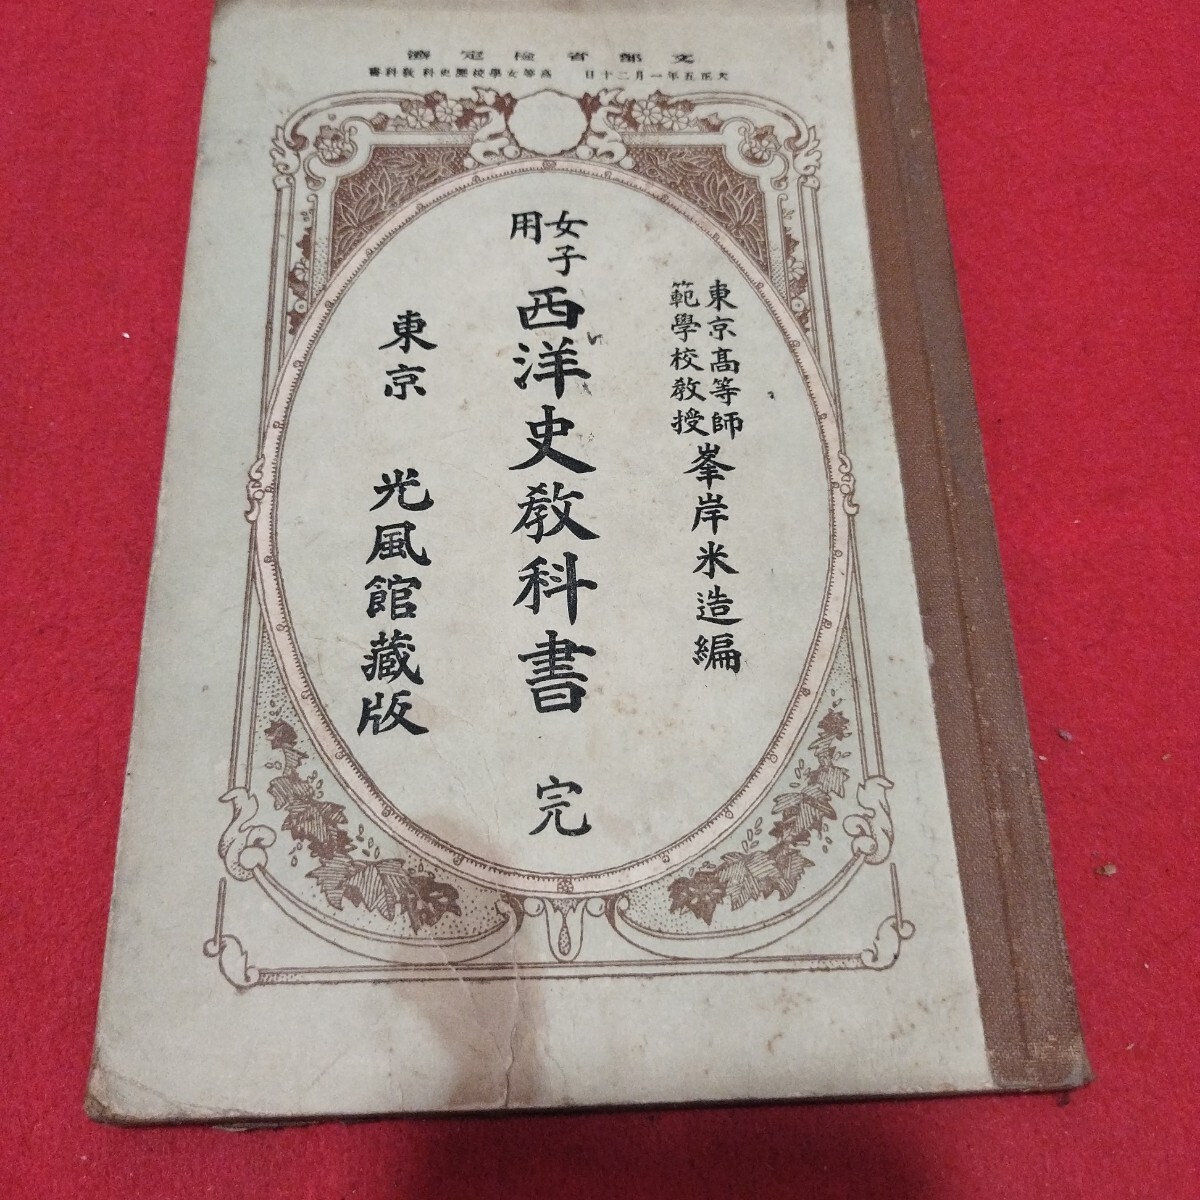 文部省檢定濟
大正五年一月二十日　高等女學校歷史科敎科書
東京高等師
範學校敎授
峯岸米造編
女子
用
西洋史敎科書　完
東京　光風館藏版